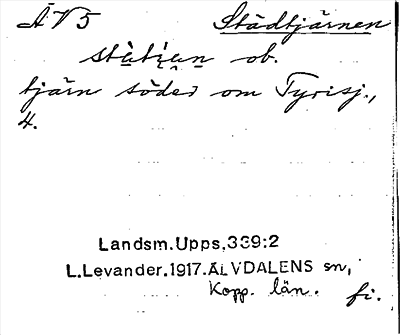 ÄV5 Städtjärnen
ob.
tjärn söder om Fyrisj.,
4.
Landsm.Upps,339:2
L.Levander.1917.ÄLVDALENS sn,
Kopp. län. fi.